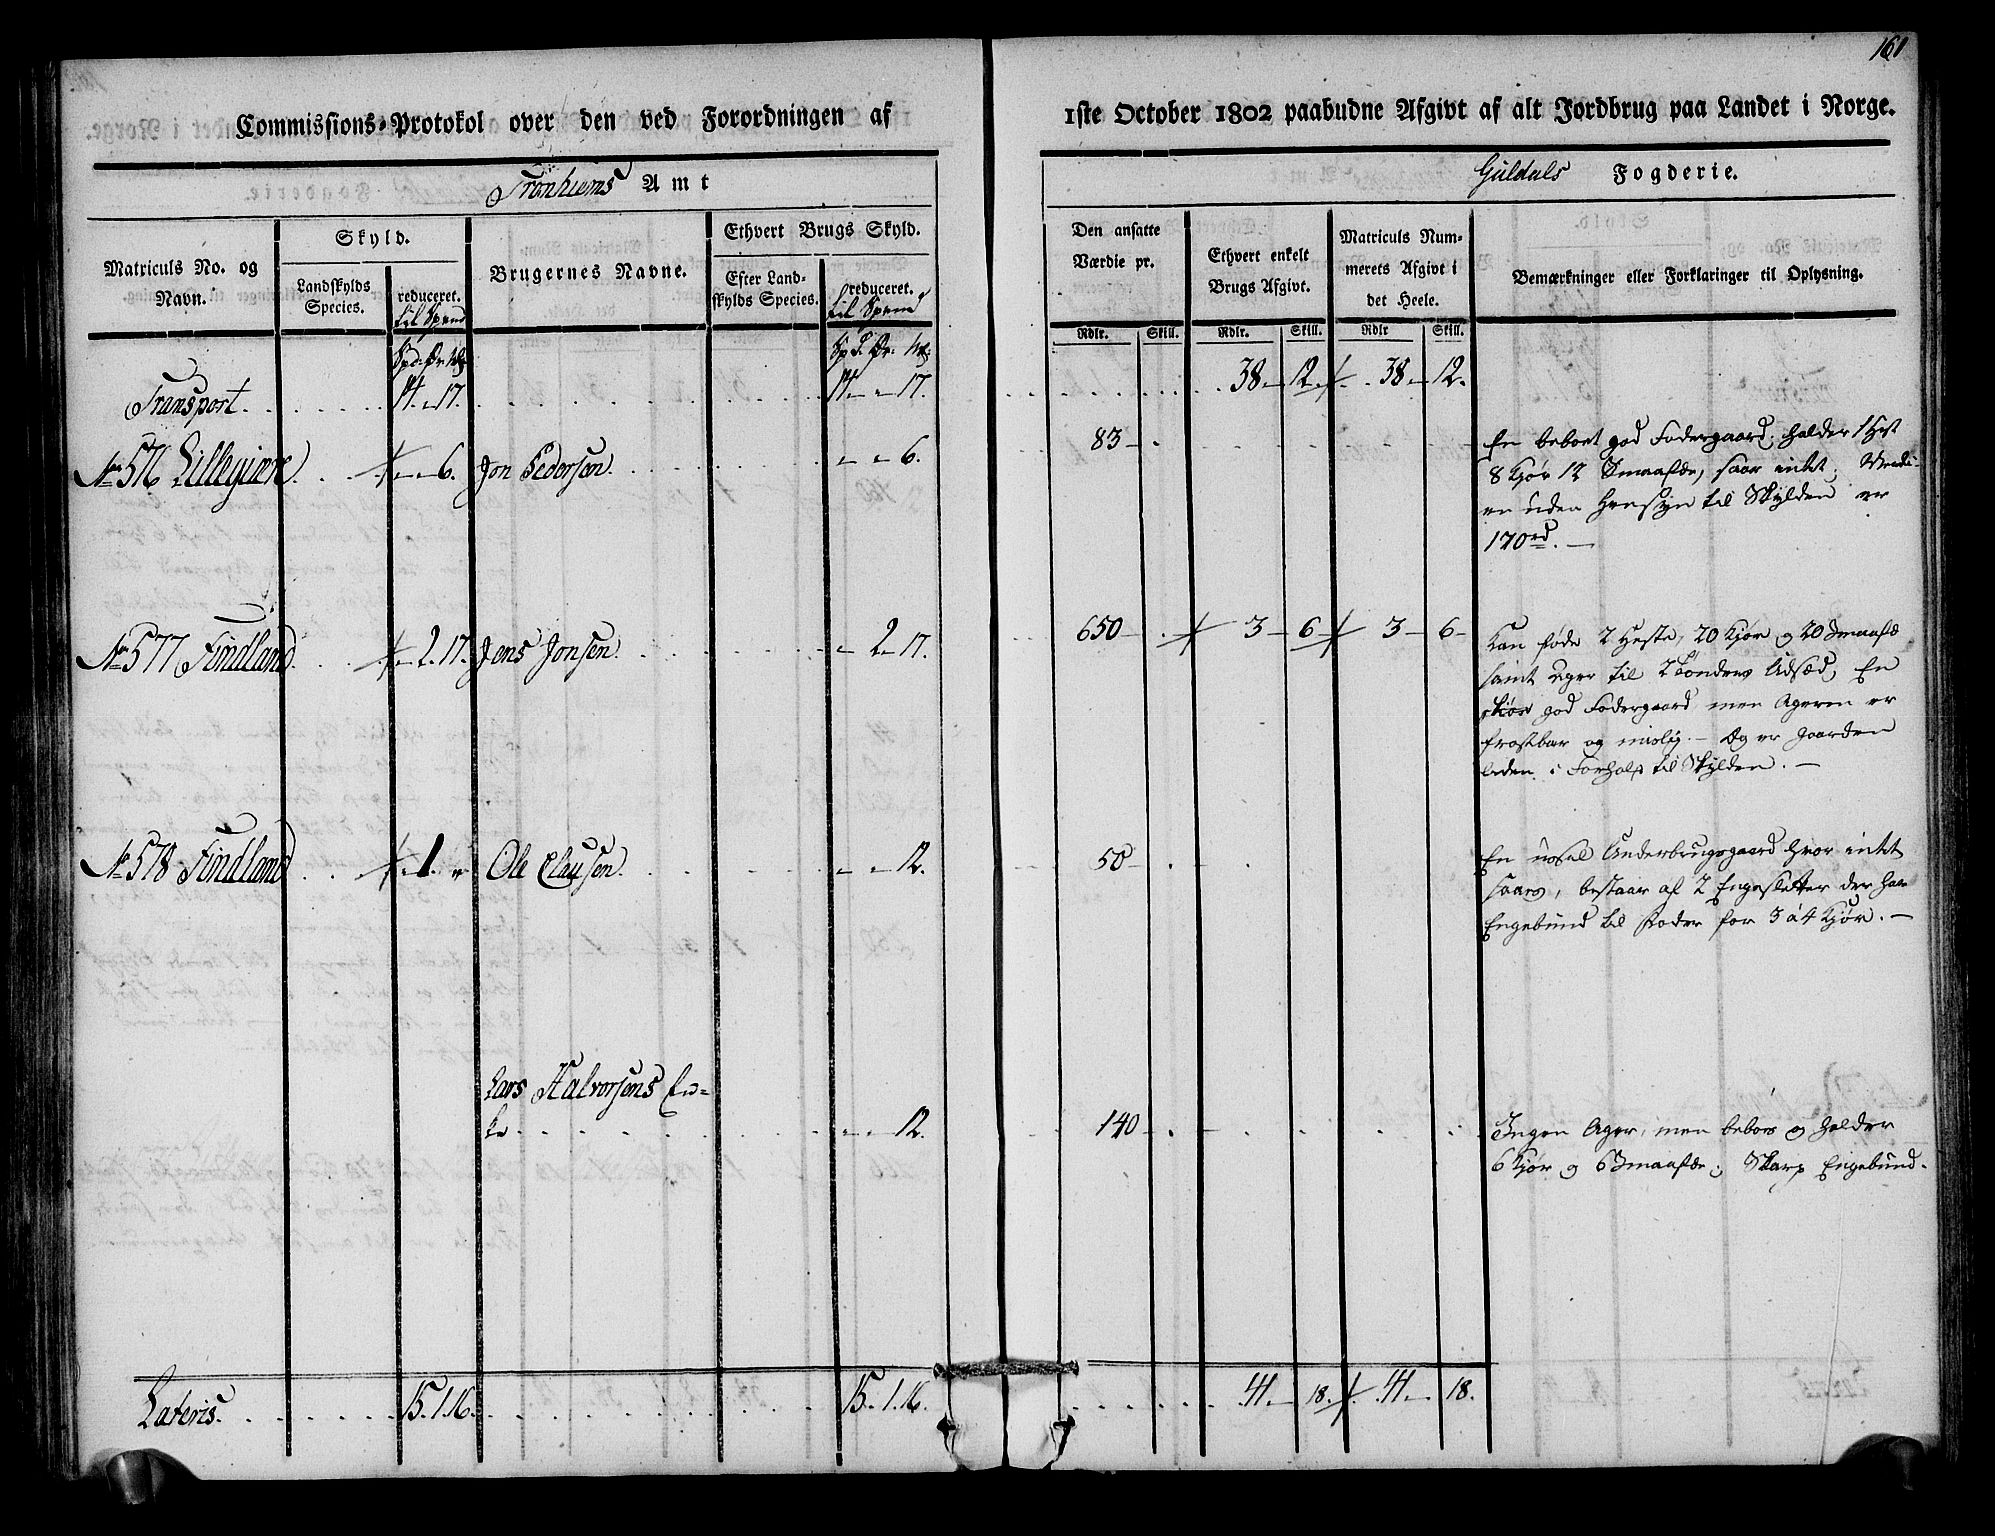 161
Commissions-Protokol over den ved Forordningen af 1ste October 1802 paabudne Afgivt af alt Jordbrug paa Landet i Norge.
Tronhiems Amt
Guldals Fogderie.
Matriculs No. og Navn.
Skyld.
Landskylds Species.
reduceret. til Spand
Brugernes Navne.
Ethvert Brugs Skyld.
Efter Landskylds Species.
reduceret. til Spand
Den ansatte Værdie pr.
Ethvert enkelt Brugs Afgivt.
Matriculs Nummerets Afgivt i det Heele.
Bemærkninger eller Forklaringer til Oplysning.
Rdlr. Skill. Rdlr. Skill. Rdlr Skill.
Spd: Ør: Mk: Spd: Ør: Mk:
Transport. 14. " 17. 14. " 17. 38 – 12. 38 – 12.
No 576 Lillegiære " " 6. Jon Pedersen " " 6. 83 –
En beboet god Fodergaard; holder 1 Hest
8 Kjør 12 Smaafæ, saar intet;
en uden Hensyn til Skylden er
170 rd. –
No 577 Findland " 2. 17. Jens Jonsen " 2. 17. 650 – 3 – 6 – 3 – 6 –
Kan føde 2 Heste, 20 Kjør og 20 Smaafæ
samt Ager til 2 Tønders Udsæd, En
god Fodergaard men Ageren er
frostbar og mislig. – Og er Gaarden
liden i Forhold til Skylden. –
No 578 Findland " 1. " Ole Clausen " " 12. 50 –
En ussel Underbrugsgaard hvor intet
saaes, bestaar af 2 Engesletter der har
Engebund til Foder for 3 à 4 Kjør. –
Lars Halvorsens En-
ke " " 12. 140 –
Ingen Ager, men beboes og holder
6 Kjør og 6 Smaafæ; Skarp Engebund.
Lateris. 15. 1. 16. 15. 1. 16. 41 – 18. 41 – 18.